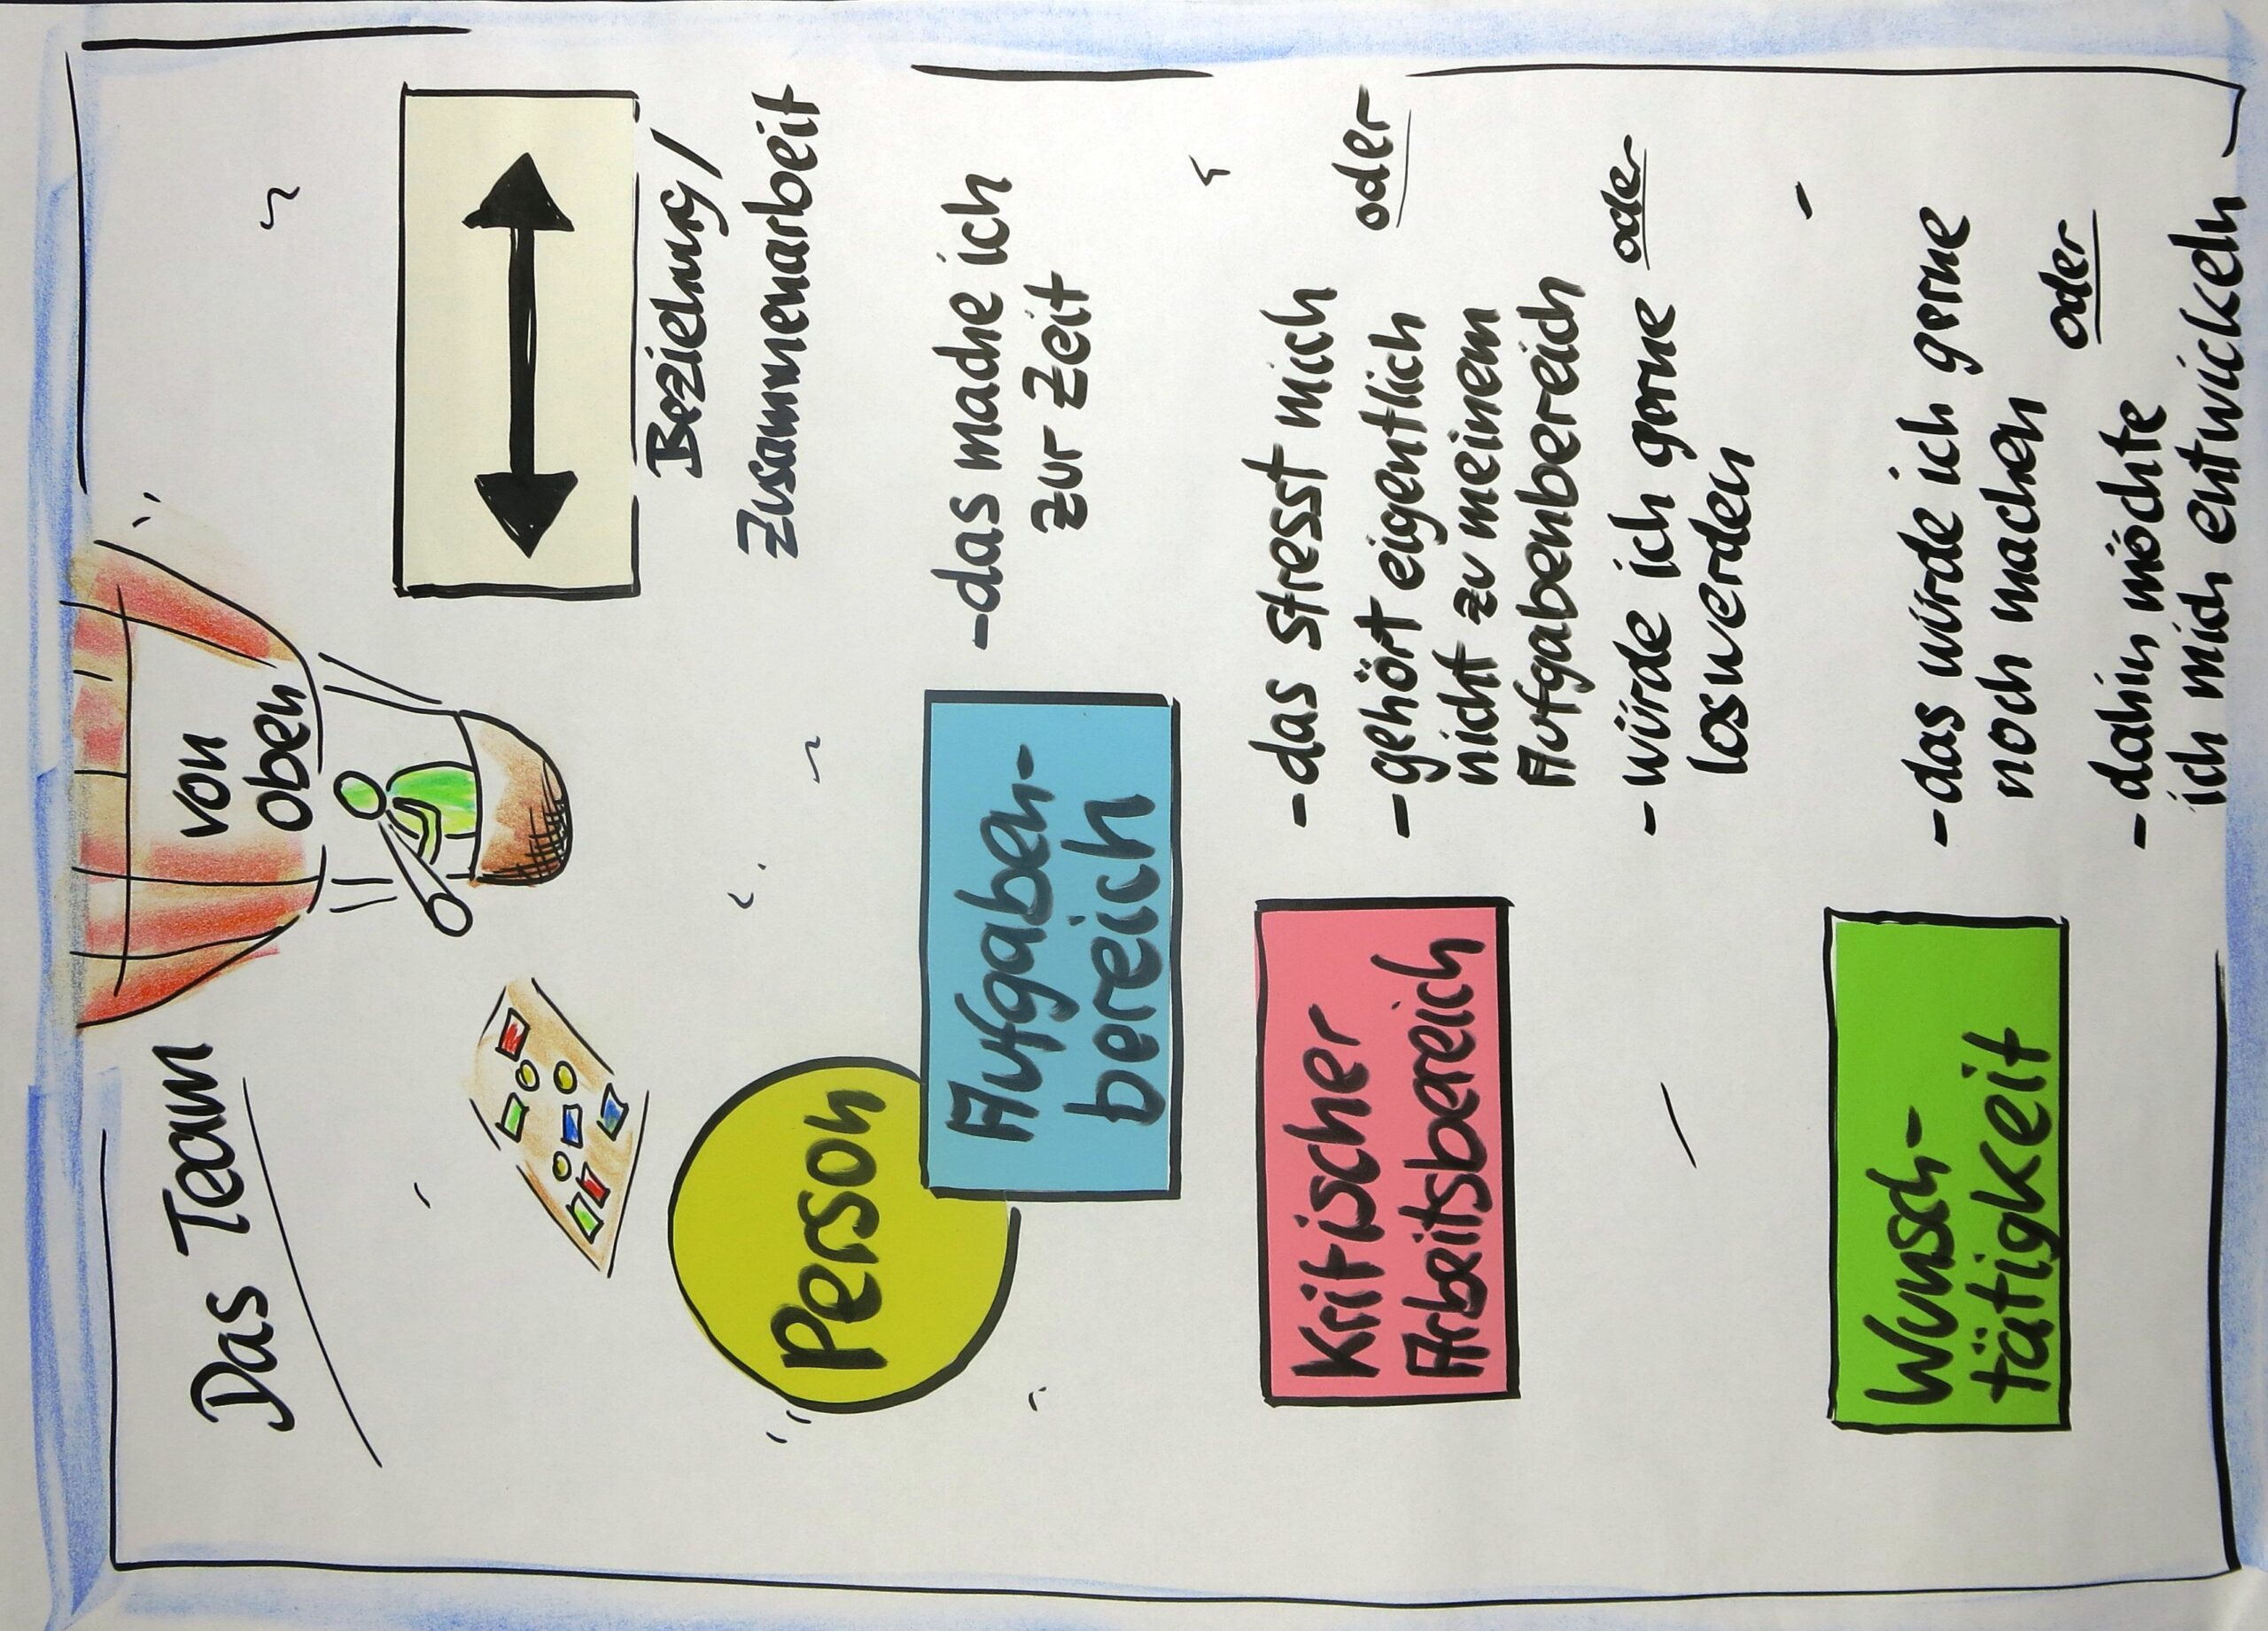 Das Team
von
oben
Beziehung/
Zusammenarbeit
Person
Aufgaben-
bereich
-das mache ich
zur Zeit
Kritischer
Arbeitsbereich
-das stresst mich
oder
-gehört eigentlich
nicht zu meinem
Aufgabenbereich
oder
-würde ich gerne
loswerden
Wunsch-
tätigkeit
-das würde ich gerne
noch machen
oder
-dahin möchte
ich mich entwickeln